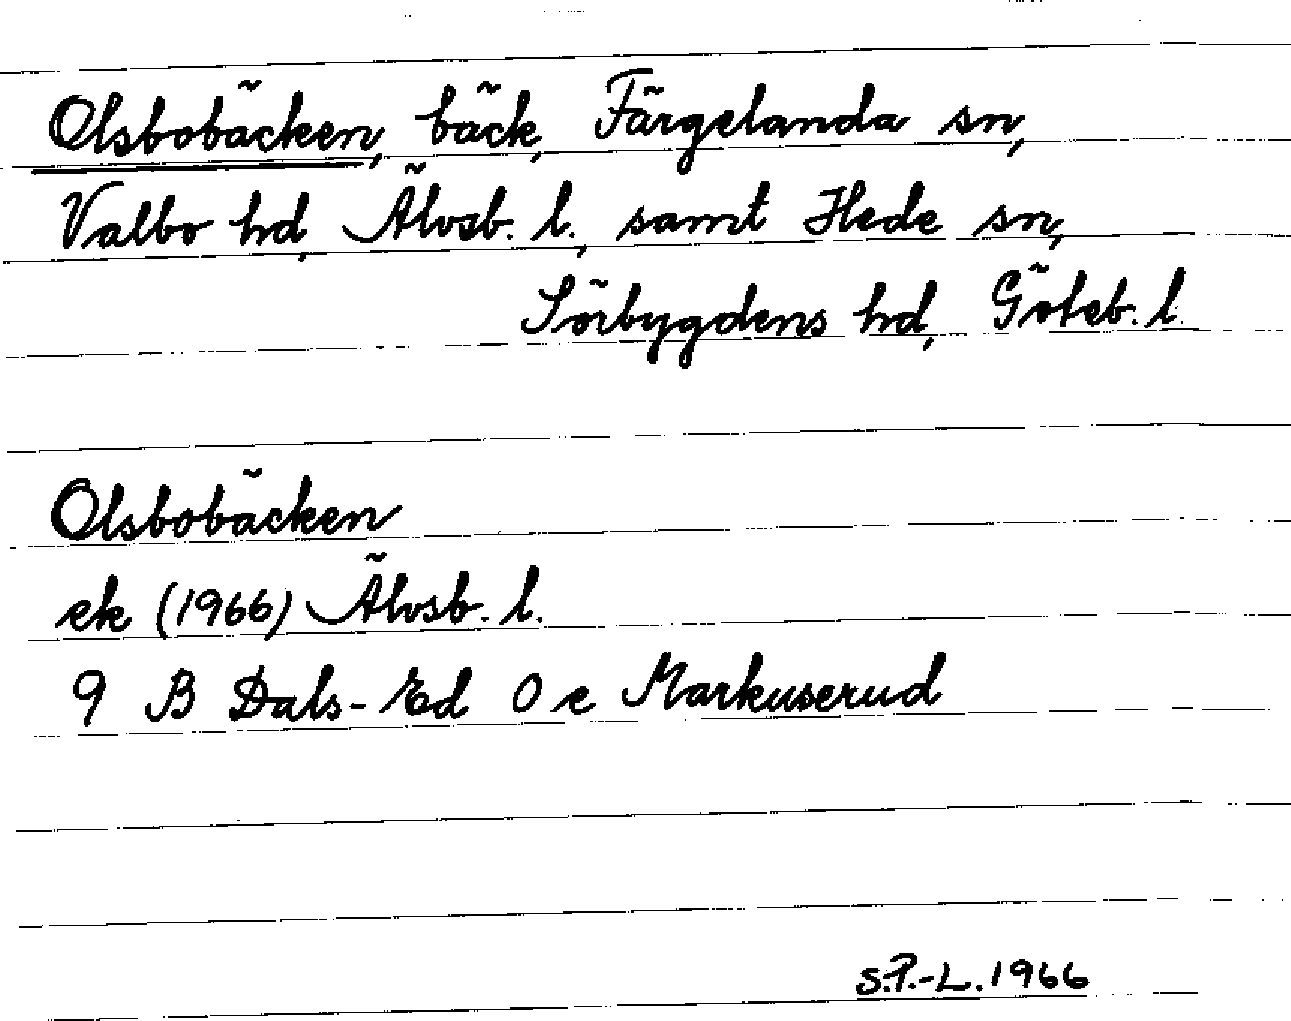 Olsbobäcken, bäck, Färgelanda sn,
Valbo hd, Älvsb. l., samt Hede sn,
Sörbygdens hd, Göteb. l.
Olsbobäcken
ek (1966) Älvsb. l.
9 B Dals-Ed 0 e Markuserud
S.P.-L. 1966